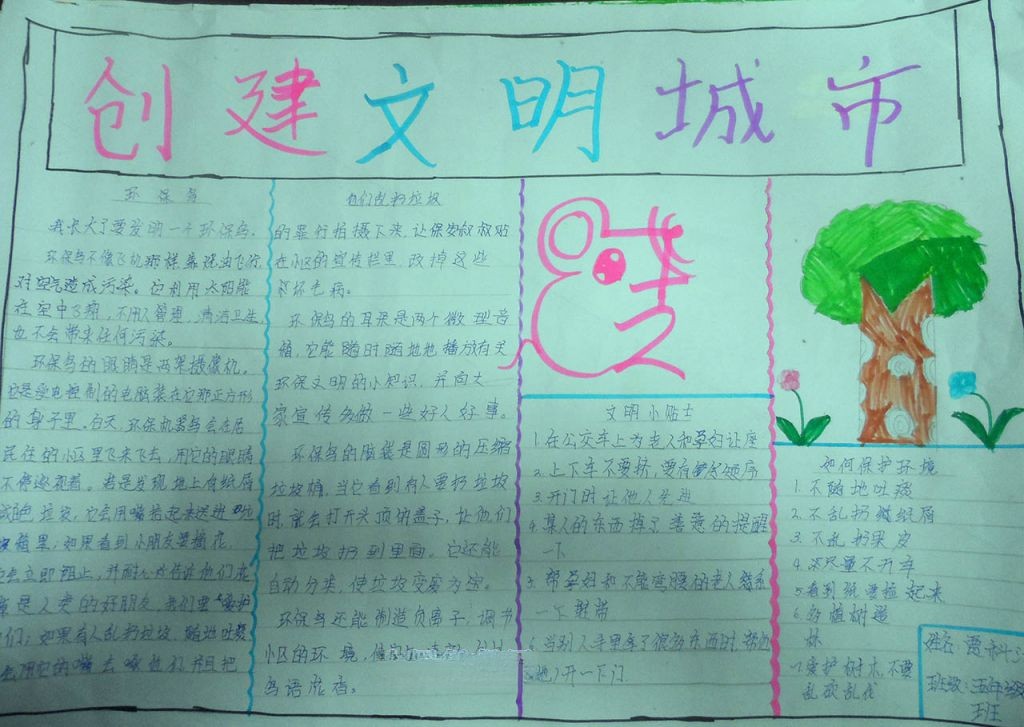 创建文明城市
环保鸟
我长大了要发明一个环保鸟。
环保鸟不像飞机那样靠烧油飞行,
对空气造成污染。它利用太阳能
在空中飞翔,不用人管理,清洁卫生,
也不会带来任何污染。
环保鸟的眼睛是两架摄像机。
它是受电控制的电脑装在它那正方形
的身子里。白天,环保机器鸟会在居
民住的小区里飞来飞去,用它的眼睛
不停巡视着。若是发现地上有纸屑
垃圾,它会用嘴捡起来送进
箱里,如果看到小朋友要摘花,
会立即阻止,并耐心告诉他们花
是人类的好朋友,我们要爱护
们;如果有人乱扔垃圾,随地吐痰
会用它的嘴去啄他们并且把
他们乱扔垃圾
的罪行拍摄下来,让保安叔叔贴
在小区的宣传栏里,改掉这些
坏毛病。
环保鸟的耳朵是两个微型音
箱,它能随时随地地播放有关
环保文明的小知识,并向大
家宣传多做一些好人好事。
环保鸟的脑袋是圆形的压缩
垃圾桶,当它看到有人要扔垃圾
时,就会打开头顶的盖子,让他们
把垃圾扔到里面。它还能
自动分类,使垃圾变废为宝。
环保鸟还能制造负离子,调节
小区的环境,
鸟语花香。
文明小贴士
1.在公交车上为老人和孕妇让座
2.上下车不要挤,要有秩序
3.开门时让他人先进
4.某人的东西掉了善意的提醒
一下
5.帮孕妇和不能弯腰的老人系
一下鞋带
6.当别人手里拿了很多东西时,帮他
(她)开一下门
如何保护环境
1.不随地吐痰
2.不乱扔纸屑
3.不乱扔果皮
4.尽量不开车
5.看到纸要捡起来
6.多植树造
林
7.爱护树木,不要
乱砍乱伐
姓名:
班级:五年级
班